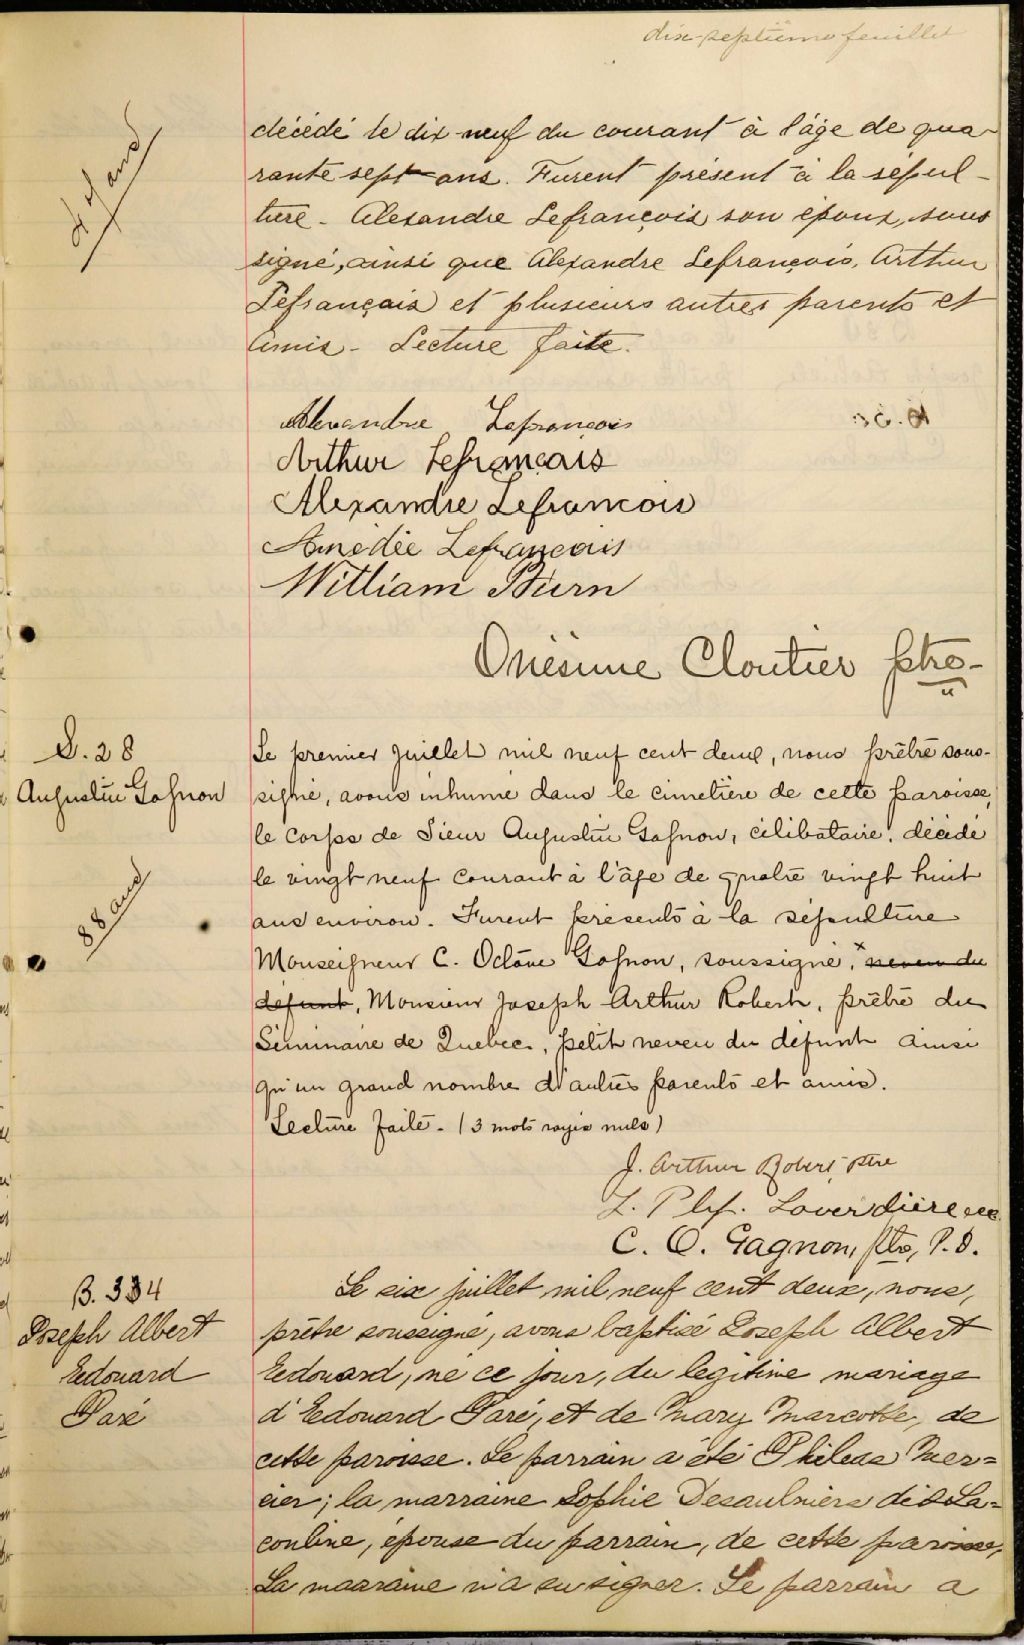 dix-septième feuillet
décédé le dix neuf du courant à l'âge de qua-
rante sept ans. Furent présent à la sépul-
ture - Alexandre Lefrançois son époux, sous
signé, ainsi que Alexandre Lefrançois, Arthur
Lefrançais et plusieurs autres parents et
amis - Lecture faite.
47 ans
Alexandre Lefrançois
Arthur Lefrançais
Alexandre Lefrancois
Amédée Lefrançois
William
Onésime Cloutier ptre-
S. 28
Augustin Gagnon
88 ans
Le premier juillet mil neuf cent deux, nous prêtre sous-
signé, avons inhumé dans le cimetière de cette paroisse,
le corps de Sieur Augustin Gagnon, célibataire, décédé
le vingt neuf courant à l'âge de quatre vingt huit
ans environ. Furent présents à la sépulture
Monseigneur C. Octave Gagnon, soussigné, x neveu du
défunt, Monsieur Joseph Arthur Robert, prêtre du
Séminaire de Quebec, petit neveu du défunt ainsi
qu'un grand nombre d'autres parents et amis.
Lecture faite - (3 mots rayés nuls)
J. Arthur Robert, ptre
L. Laverdière
C. O. Gagnon, ptre, P. D.
B. 334
Joseph Albert
Edouard
Paré
Le six juillet mil neuf cent deux, nous,
prêtre soussigné, avons baptisé Joseph Albert
Edouard, né ce jour, du legitime mariage
d'Edouard Paré, et de Mary Marcotte, de
cette paroisse. Le parrain a été Phileas Mer=
cier; la marraine Sophie Desaulniers dit La=
couline, épouse du parrain, de cette paroisse,
La marraine n'a su signer. Le parrain a